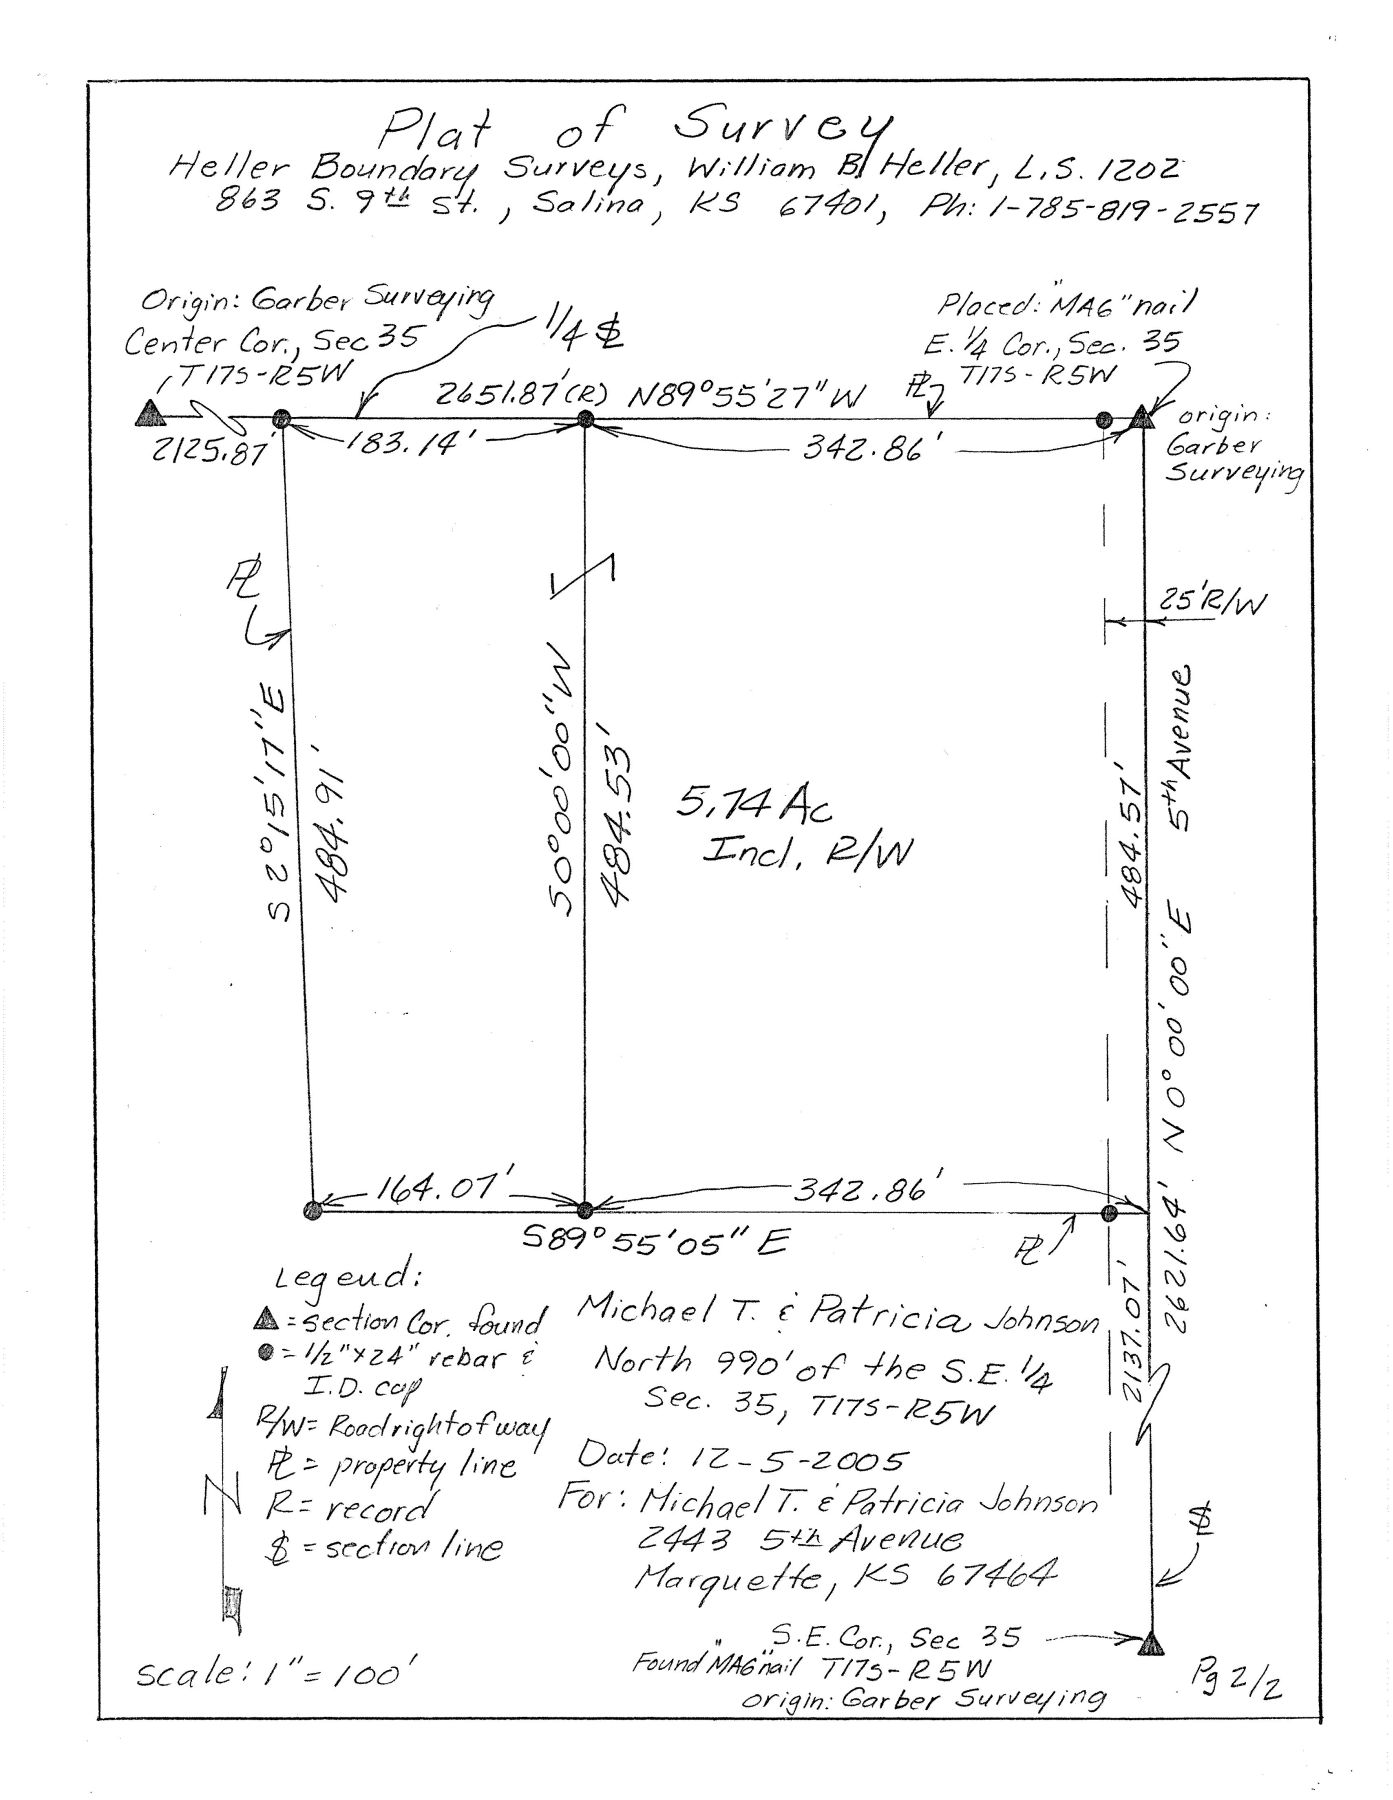 Plat of Survey
Heller Boundary Surveys, William B. Heller, L.S. 1202
863 S. 9th St., Salina, KS 67401, Ph: 1-785-819-2557
Origin: Garber Surveying
Center Cor., Sec 35
T17S-R5W
1/4 SL
Placed: "MAG" nail
E. 1/4 Cor., Sec. 35
T17S-R5W
2651.87'(R) N89°55'27"W
PL
origin:
Garber
Surveying
2125.87'
183.14'
342.86'
PL
25' R/W
S 2°15'17"E
484.91'
S0°00'00"W
484.53'
5.74 Ac
Incl. R/W
484.57'
5th Avenue
2621.64' N0°00'00"E
164.07'
342.86'
S89°55'05"E
PL
2137.07'
Legend:
▲ = section Cor. found
● = 1/2"x24" rebar &
I.D. cap
R/W = Road right of way
PL = property line
R = record
SL = section line
N
Scale: 1" = 100'
Michael T. & Patricia Johnson
North 990' of the S.E. 1/4
Sec. 35, T17S-R5W
Date: 12-5-2005
For: Michael T. & Patricia Johnson
2443 5th Avenue
Marquette, KS 67464
SL
S.E. Cor., Sec 35
Found "MAG" nail T17S-R5W
origin: Garber Surveying
Pg 2/2